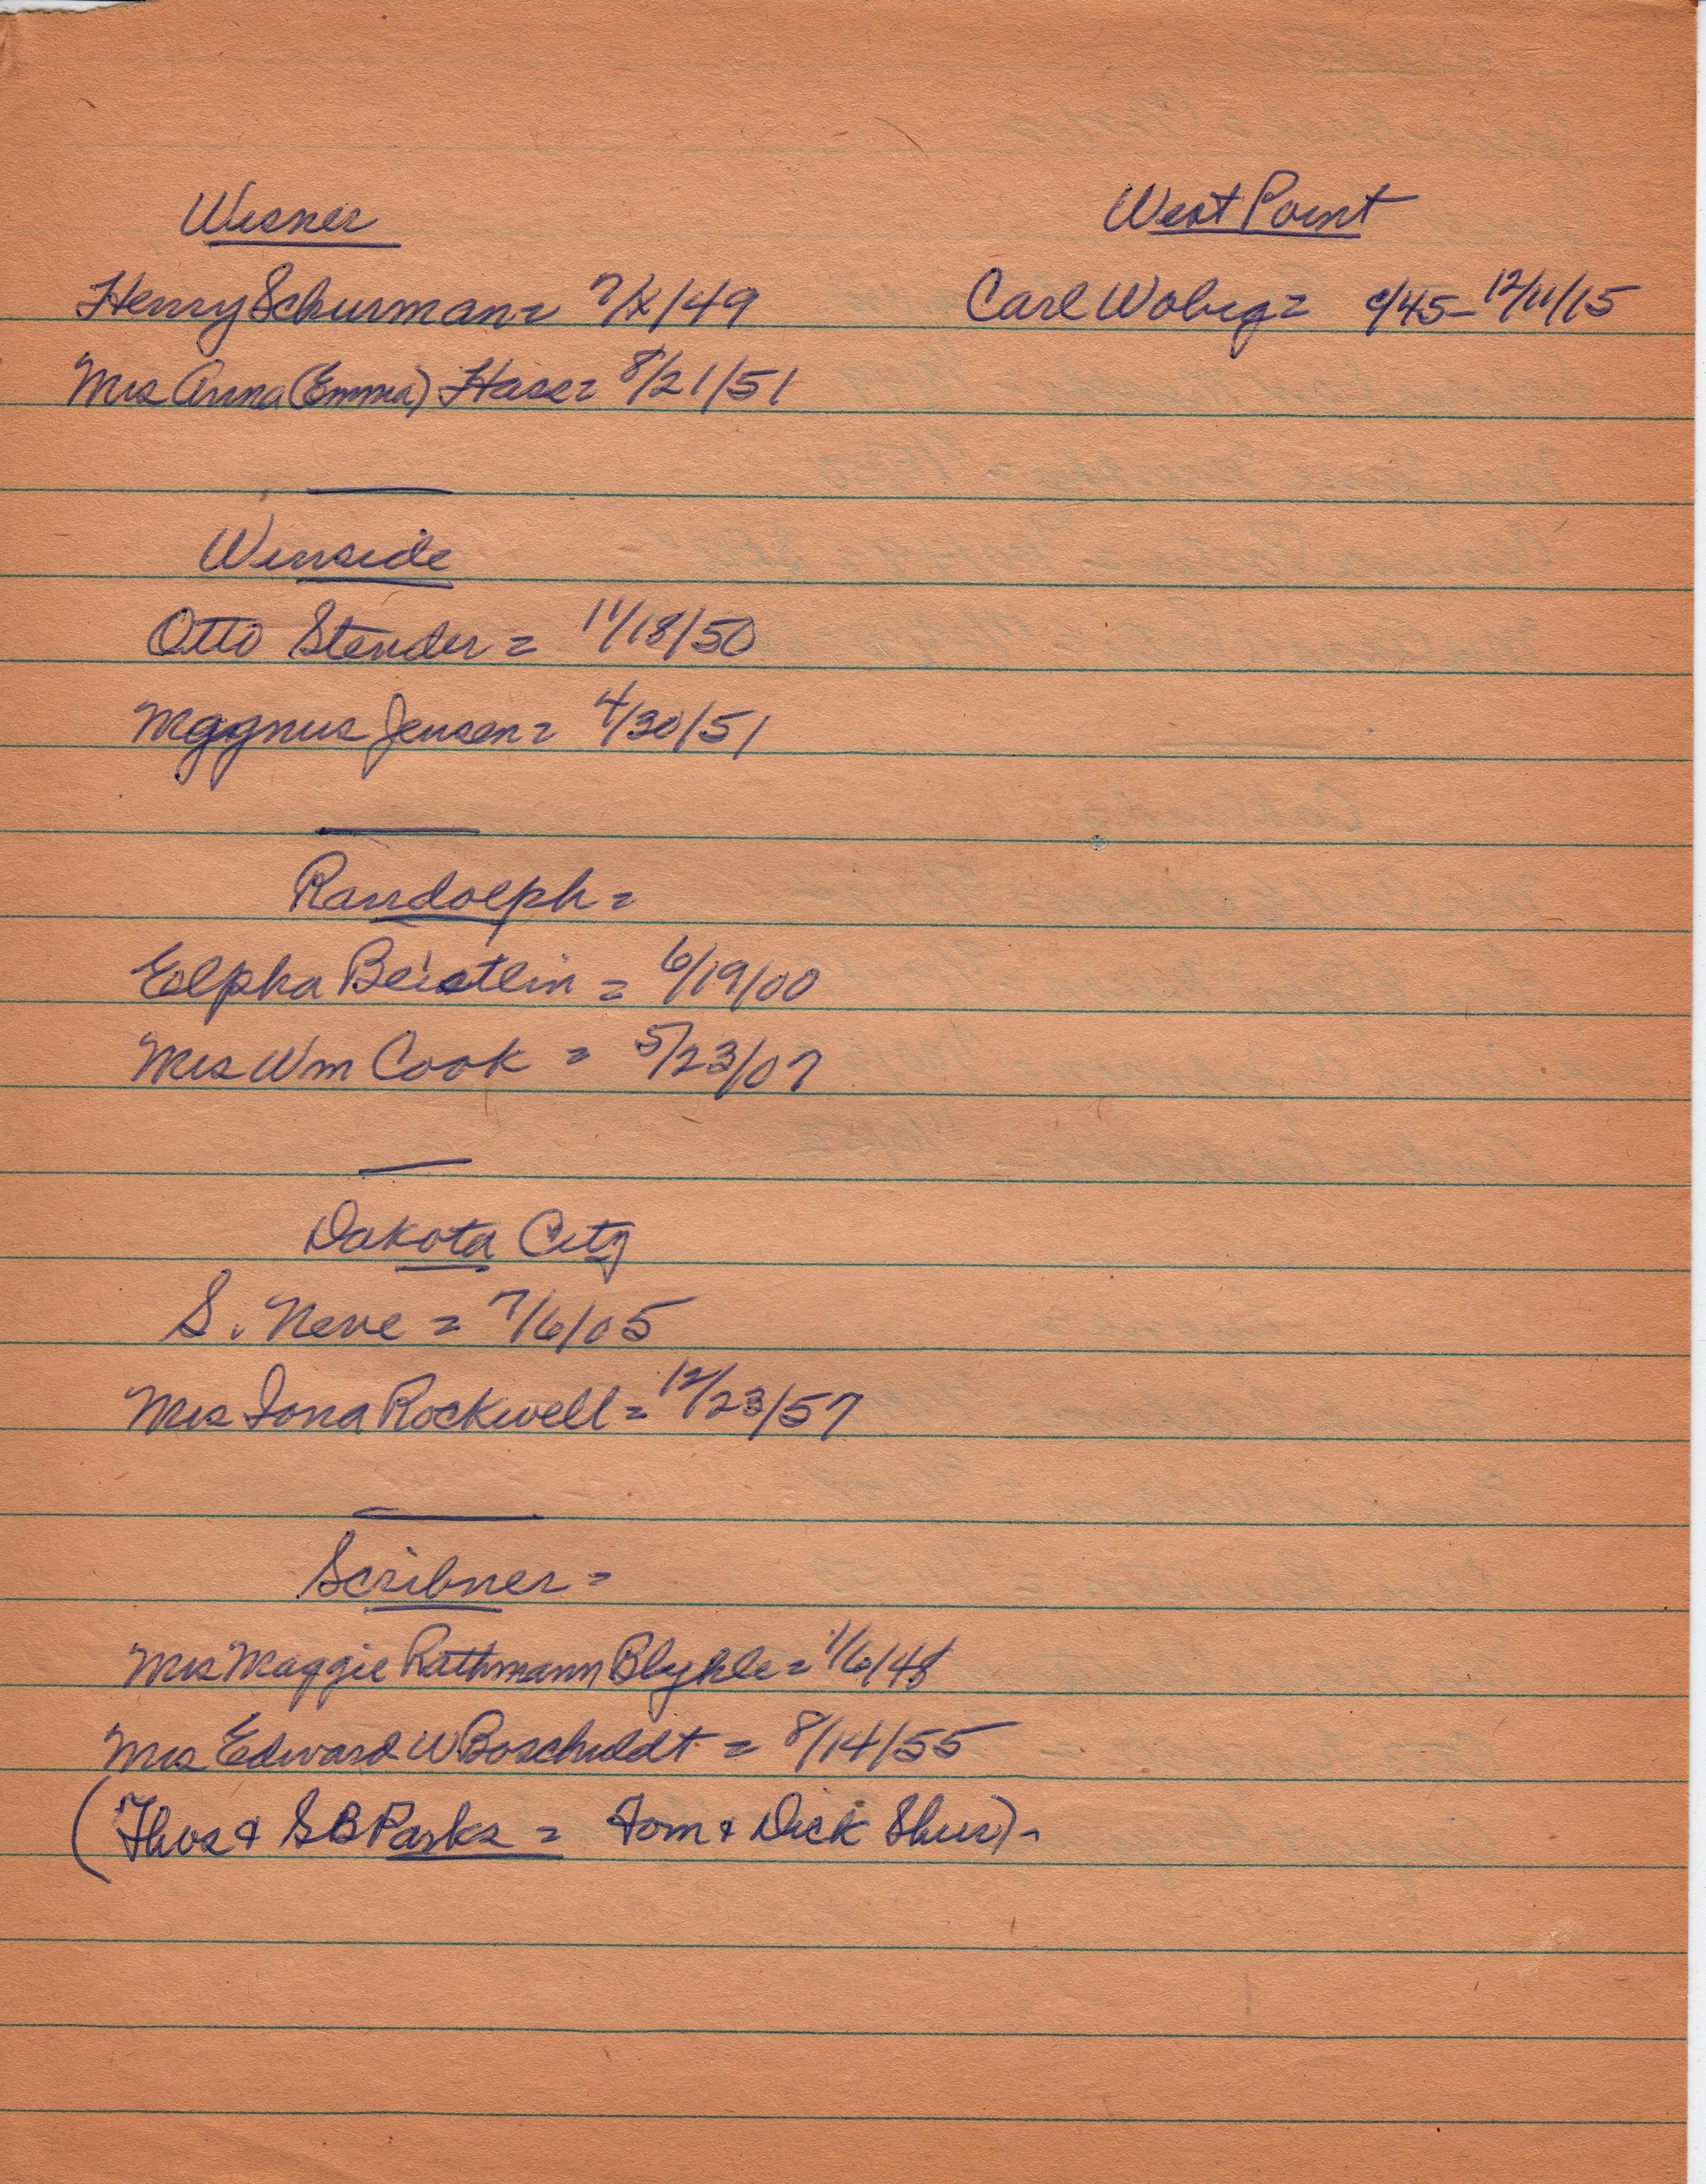 Wisner
Henry Schurman = 7/X/49
Mrs Anna (Emma) Hase = 8/21/51
West Point
Carl Wobig = c/45 - 12/11/15
Winside
Otto Stender = 11/18/50
Maggnus Jensen = 4/30/51
Randolph =
Eelpha Beistlin = 6/19/00
Mrs Wm Cook = 5/23/07
Dakota City
S. Neve = 7/6/05
Mrs Iona Rockwell = 12/23/57
Scribner =
Mrs Maggie Rathmann Blyhle = 1/6/48
Mrs Edward W Boschuldt = 8/14/55
(Thos & SB Parks = Tom & Dick Shur) -